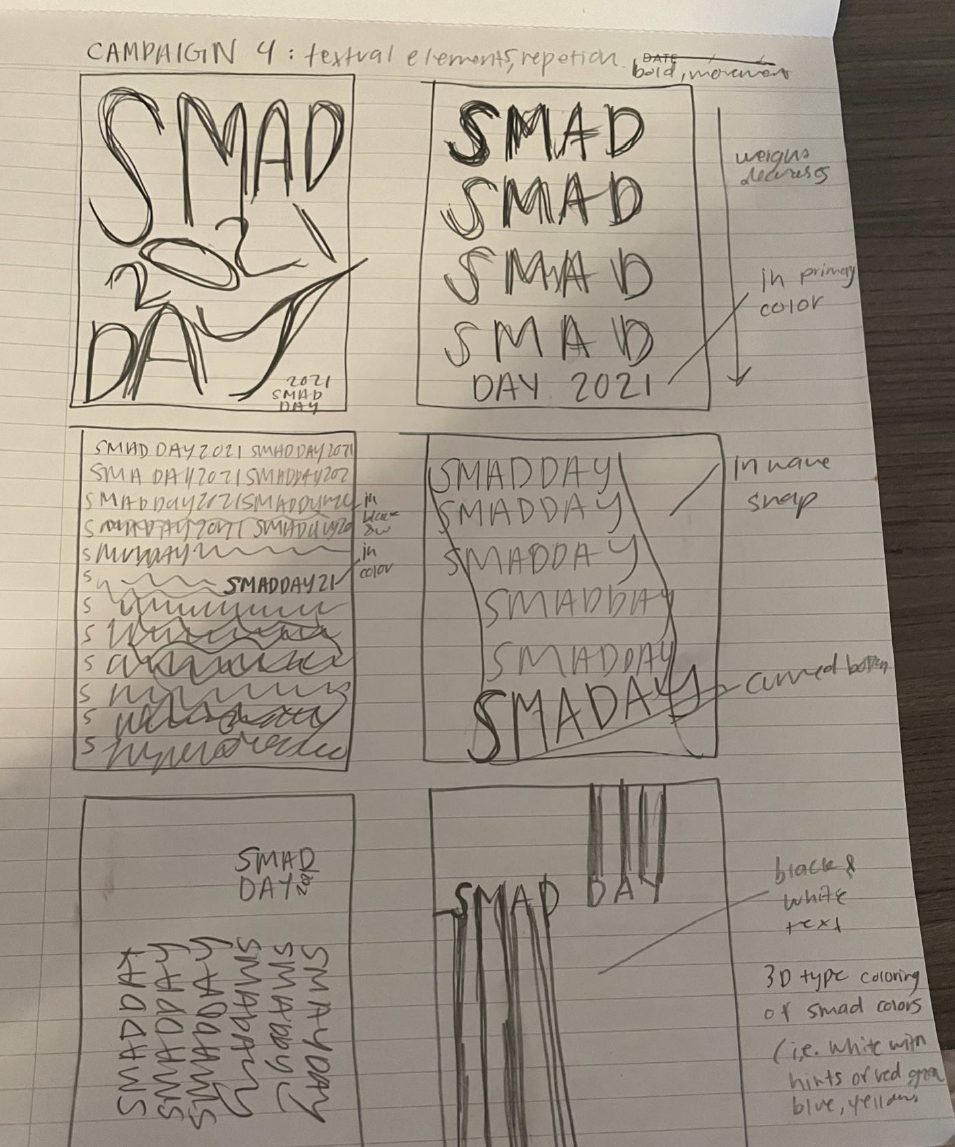 CAMPAIGIN 4: textual elements, repetion.
DATE
bold, movement
SMAD
202
DAY
2021
SMAD
DAY
SMAD
SMAD
SMAD
SMAD
DAY 2021
weighs
decreases
in primary
color
SMAD DAY 2021 SMADDAY2021
SMA DAY2021 SMADDAY202
SMADDay2021SMADDAY
SMADDAY2021 SMADDAY20
S
S
SMADDAY21
S
S
S
S
S
S
in
black
&w
in
color
SMADDAY
SMADDAY
SMADDAY
SMADDAY
SMADDAY
SMADAY
in wave
snap
curved bottom
SMAD
DAY 2021
SMAD DAY
black &
white
text
3D type coloring
of smad colors
(i.e. white with
hints of red green
blue, yellow